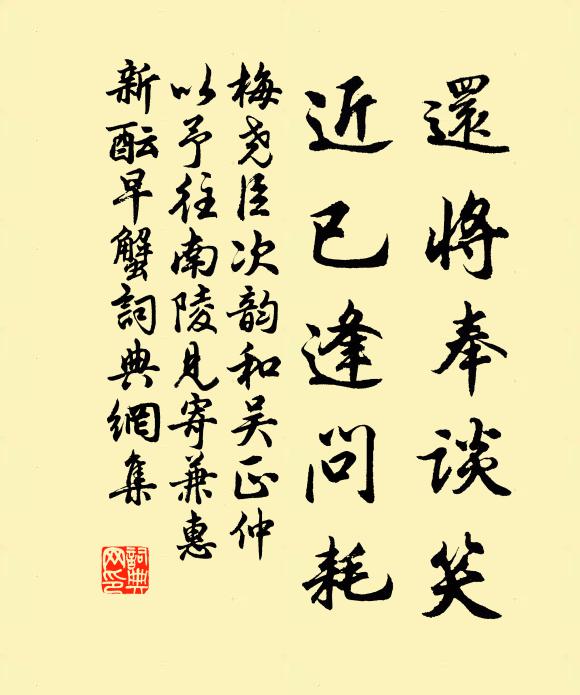 還將奉談笑
近已逢問耗
梅尧臣次韵和吴正仲
以予往南陵見寄兼惠
新酝早蟹詞典網集
詞典网印